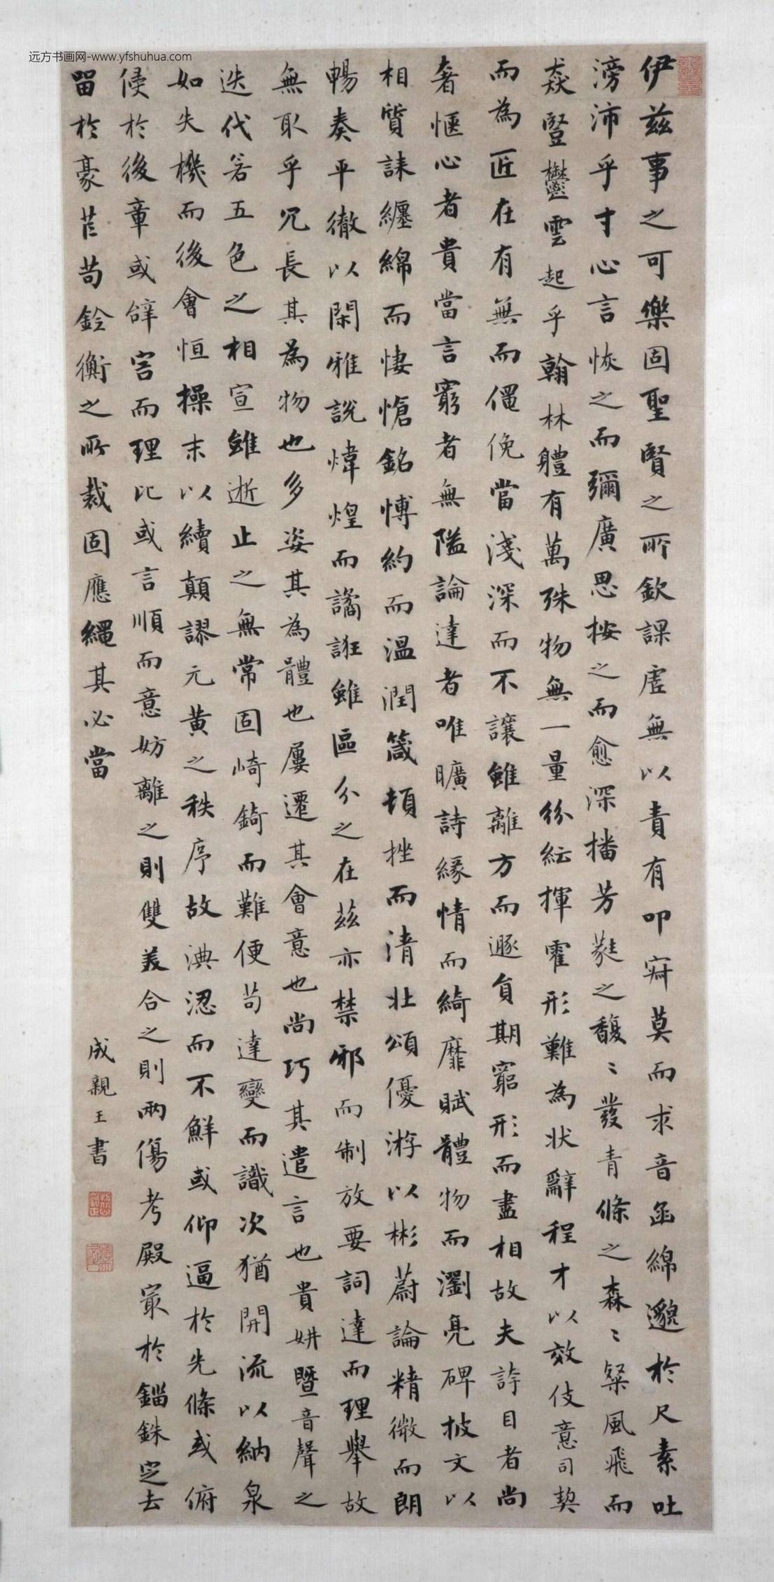 远方书画网-www.yfshuhua.com
伊茲事之可樂固聖賢之所欽課虛無以責有叩寂莫而求音函綿邈於尺素吐
滂沛乎寸心言恢之而彌廣思按之而愈深播芳蕤之馥〻發青條之森〻粲風飛而
猋豎鬱雲起乎翰林體有萬殊物無一量紛紜揮霍形難為狀辭程才以效伎意司契
而為匠在有無而僶俛當淺深而不讓雖離方而遯員期窮形而盡相故夫誇目者尚
奢愜心者貴當言窮者無隘論達者唯曠詩緣情而綺靡賦體物而瀏亮碑披文以
相質誄纏綿而悽愴銘博約而温潤箴頓挫而清壯頌優游以彬蔚論精微而朗
暢奏平徹以閑雅說煒煌而譎誑雖區分之在茲亦禁邪而制放要詞達而理舉故
無取乎冗長其為物也多姿其為體也屢遷其會意也尚巧其遣言也貴妍暨音聲之
迭代若五色之相宣雖逝止之無常固崎錡而難便苟達變而識次猶開流以納泉
如失機而後會恒操末以續顛謬元黃之秩序故淟涊而不鮮或仰逼於先條或俯
侵於後章或辭害而理比或言順而意妨離之則雙美合之則兩傷考殿最於錙銖定去
留於豪芒苟銓衡之所裁固應繩其必當
成親王書